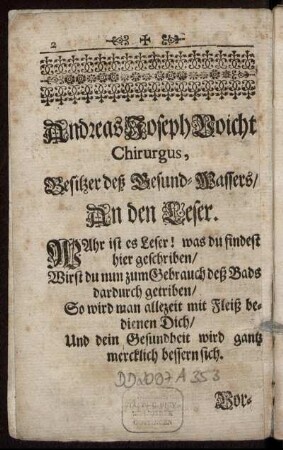 2
Andreas Joseph Voicht
Chirurgus,
Besitzer deß Gesund-Wassers/
An den Leser.
WAhr ist es Leser! was du findest
hier geschriben/
Wirst du nun zum Gebrauch deß Bads
dardurch getriben/
So wird man allezeit mit Fleiß be-
dienen Dich/
Und dein Gesundheit wird gantz
mercklich bessern sich.
DD2007 A 353
Vor-